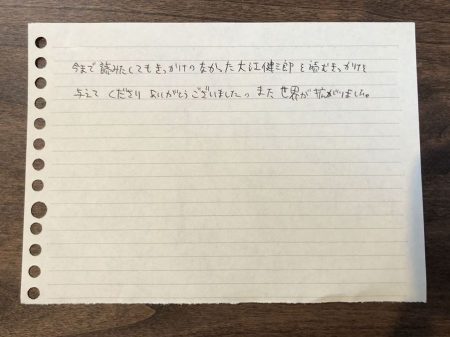 今まで読みたくてもきっかけのなかった大江健三郎を読むきっかけを
与えてくださりありがとうございました。また世界が拡がりました。